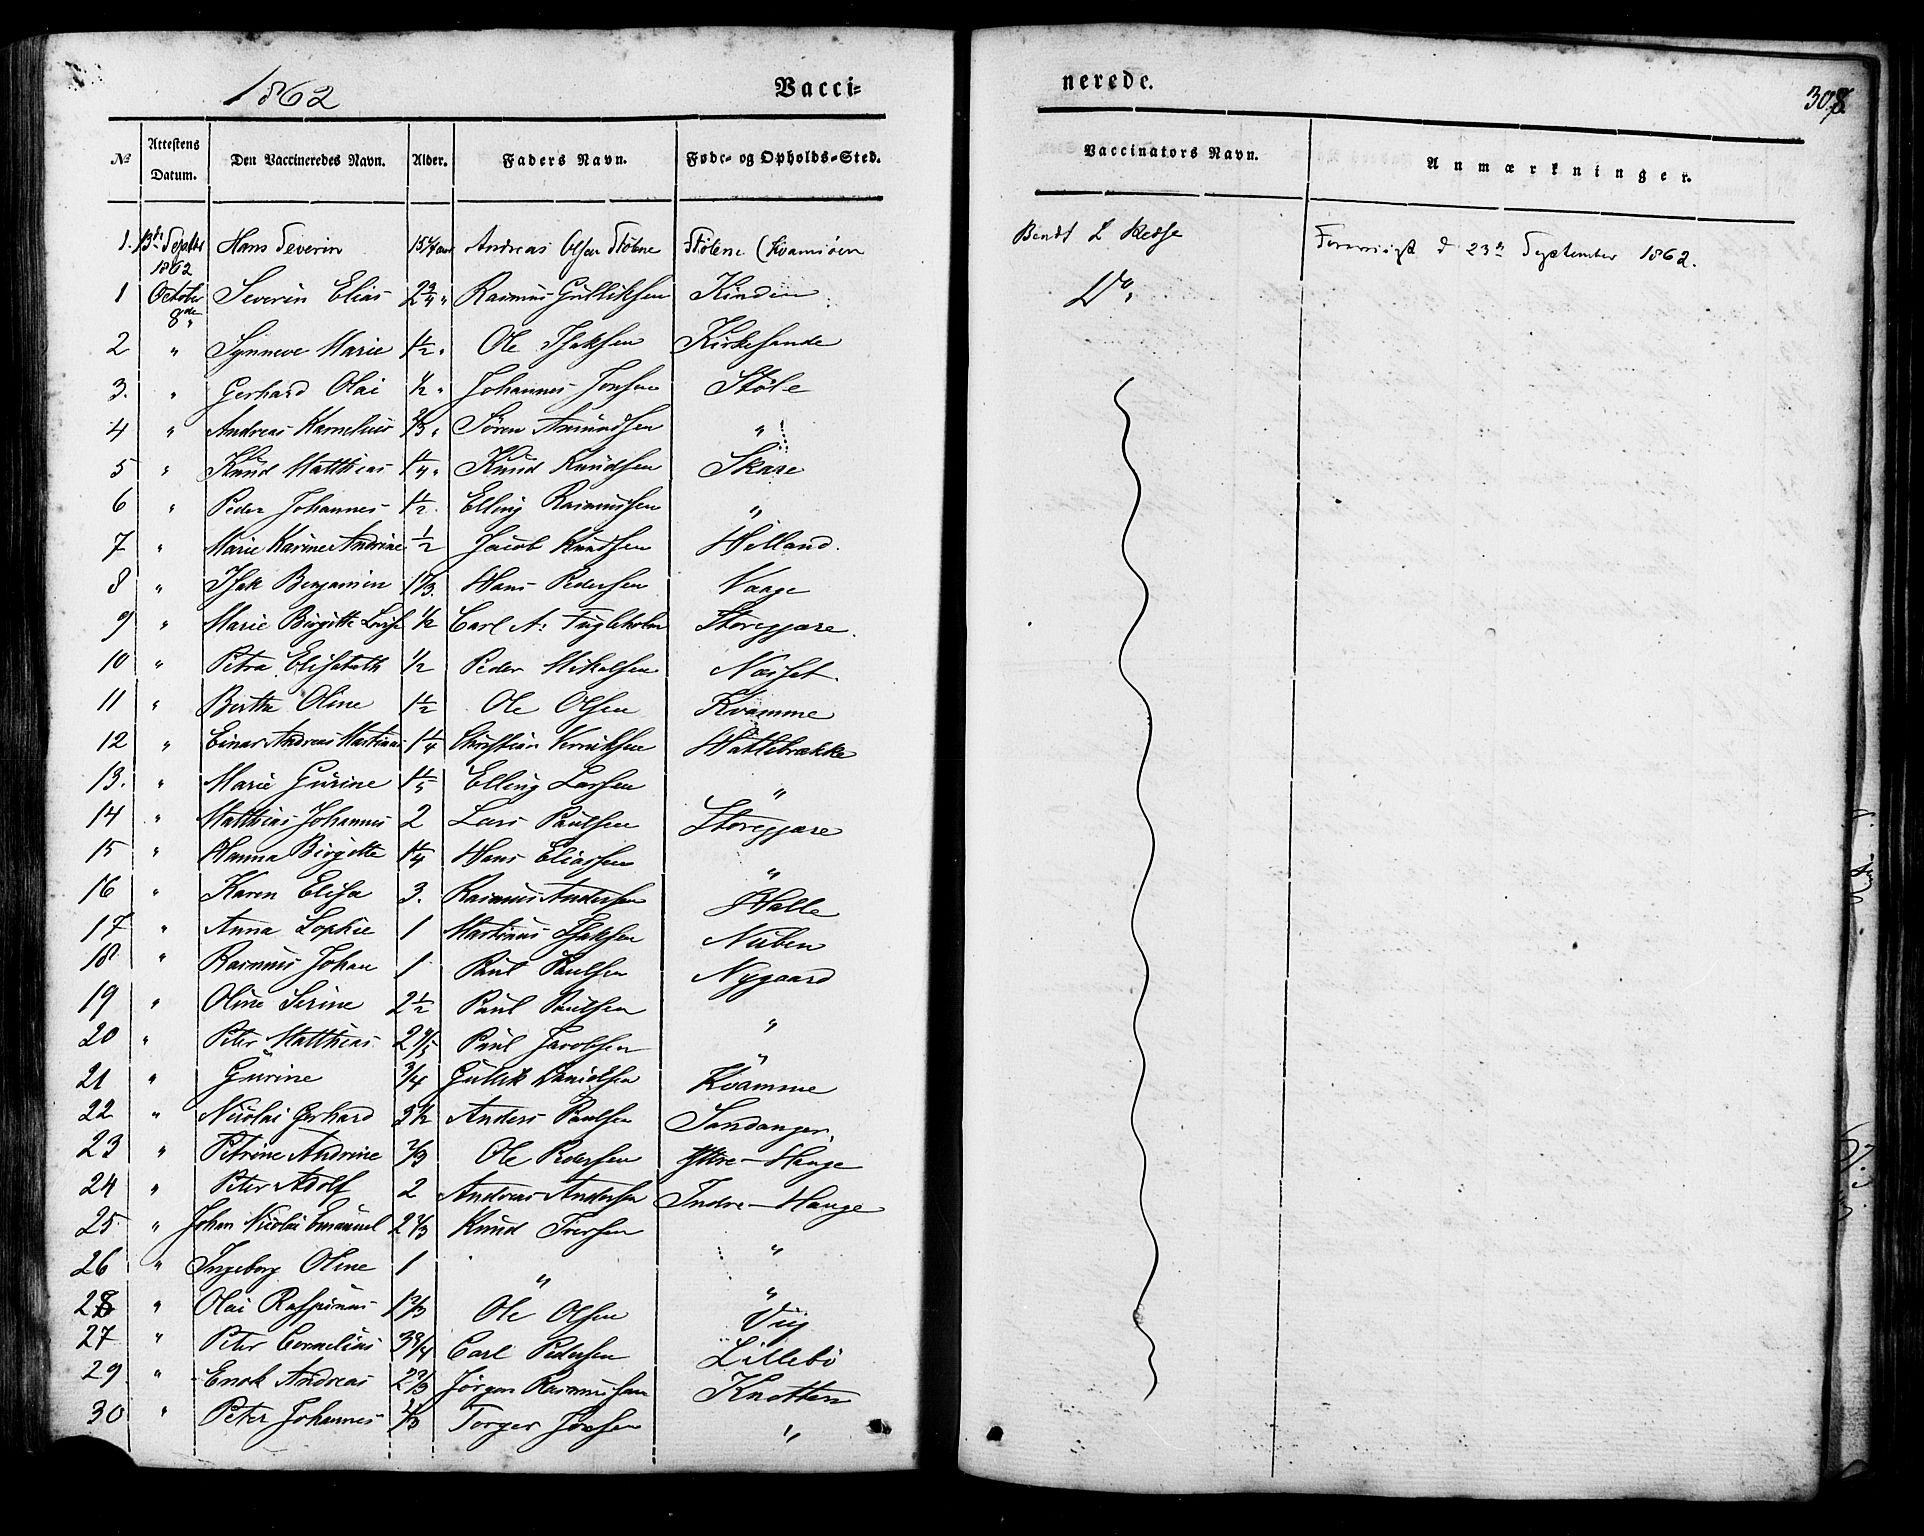 1862 Vacci- nerede. 308
№ Attestens Datum. Den Vaccineredes Navn. Alder. Faders Navn. Føde- og Opholds-Sted. Vaccinators Navn. Anmærkninger.
1. 13de Septbr 1862 Hans Severin Andreas Olsen Stølene Stølene (Kvamsöen Bendt L Forevist d 23de September 1862.
1 October 8de Severin Elias 2 3/4 " Rasmus Gulliksen Kinden Do
2 " Synneve Marie 1 1/2 " Ole Isaksen Kirkesande
3. " Gerhard Olai 1/2 " Johannes Jonsen Støle
4 " Andreas Kornelius 2/3 " Søren Amundsen "
5 " Knud Matthias 1 1/4 " Knud Knudsen Skare
6 " Peder Johannes 1 1/2 Elling Rasmussen "
7 " Marie Karine Andrine 1/2 Jacob Knudsen Helland.
8 " Isak Benjamin 1 1/3. Hans Pedersen Vaage
9 " Marie Birgitte Lovise 1/2 Carl A: Fugleholm Storegjære.
10 " Petra Elisabeth 1/2 Peder Mikelsen Næsset.
11 " Berthe Oline 1 1/2 Ole Olsen Kvamme
12 " Einar Andreas Martinus 1 1/4 Christian Henriksen Hattebrække
13. " Marie Gurine 1 1/5 Elling Larsen "
14 " Matthias Johannes 2 Lars Paulsen Storegjære
15 " Hanna Birgitte 1 1/4 Hans Eliassen "
16 " Karen Elisa 3. Rasmus Andersen Halle
17 " Anna Sophie 1 Martinus Isaksen Nuben
18 " Rasmus Johan 1 Paul Paulsen Nygaard
19 " Oline Serine 2 1/2 Paul Paulsen "
20 " Peter Matthias 2 Paul Jacobsen "
21 " Gurine 3/4 Gullik Danielsen Kvamme
22 " Nicolai Gerhard 3 1/2 Anders Paulsen Sandanger.
23 " Petrine Andrine 2/3 Ole Pedersen Ytre-Hauge
24 " Peter Adolf 2 Andreas Andersen Indre-Hauge
25. " Johan Nicolai Emanuel 2 2/3 Knud Iversen "
26 " Ingeborg Oline 1 " "
28 " Olai Raspinus 1 2/3 Ole Olsen Vig
27 " Peter Cornelius 3 3/4 Carl Pedersen Lillebö
29 " Enok Andreas 2 2/3 Jørgen Rasmussen Knotten
30 " Peter Johannes 2/3 Torger Jonsen "